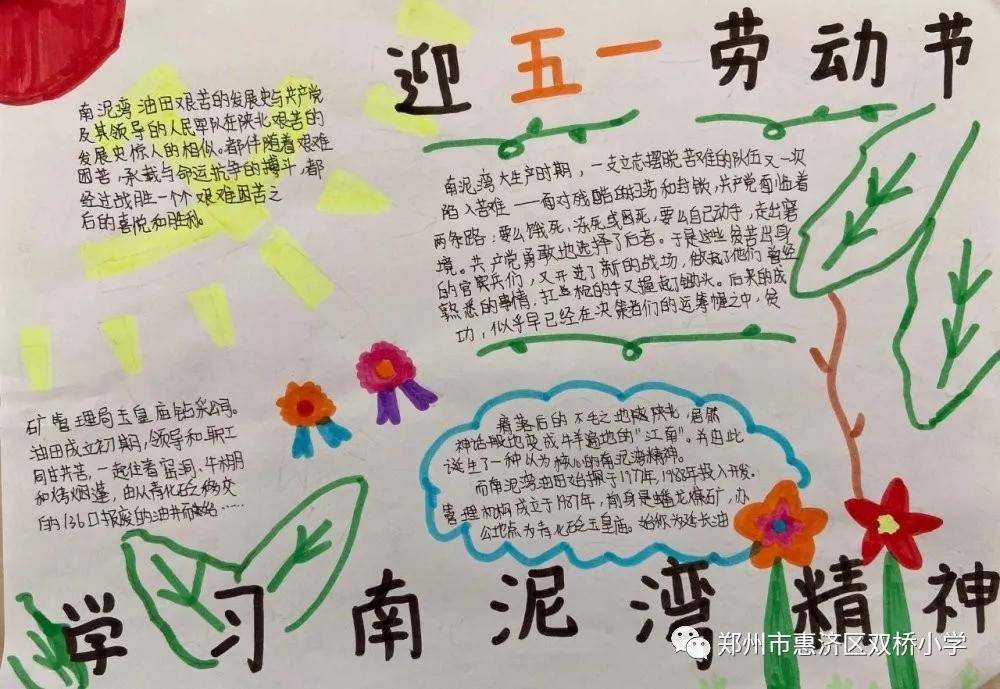 迎五一劳动节
南泥湾油田艰苦的发展史与共产党
及其领导的人民军队在陕北艰苦的
发展史惊人的相似。都伴随着艰难
困苦,承载与命运抗争的搏斗,都
经过战胜一个个艰难困苦之
后的喜悦和胜利。
南泥湾大生产时期,一支立志摆脱苦难的队伍又一次
陷入苦难——面对残酷的扫荡和封锁,共产党面临着
两条路:要么饿死,冻死或困死,要么自己动手,走出窘
境。共产党勇敢地选择了后者。于是这些贫苦出身
的官兵们,又开进了新的战场,做起了他们曾经
熟悉的事情,扛过枪的手又握起了锄头。后来的成
功,似乎早已经在决策者们的运筹帷之中,使
贫落后的不毛之地陕北,居然
神话般地变成牛羊遍地的"江南"。并由此
诞生了一种以为核心的南泥湾精神。
而南泥湾油田始探于1971年,1988年投入开发.
管理机构成立于1987年,前身是蟠龙煤矿,办
公地点为青化砭玉皇庙。始称为延长油
矿管理局玉皇庙钻采公司。
油田成立初期,领导和职工
同甘共苦,一起住着窑洞、牛棚
和烤烟蓬,由从青化砭移交
的136口报废的油井开始……
学习南泥湾精神
郑州市惠济区双桥小学